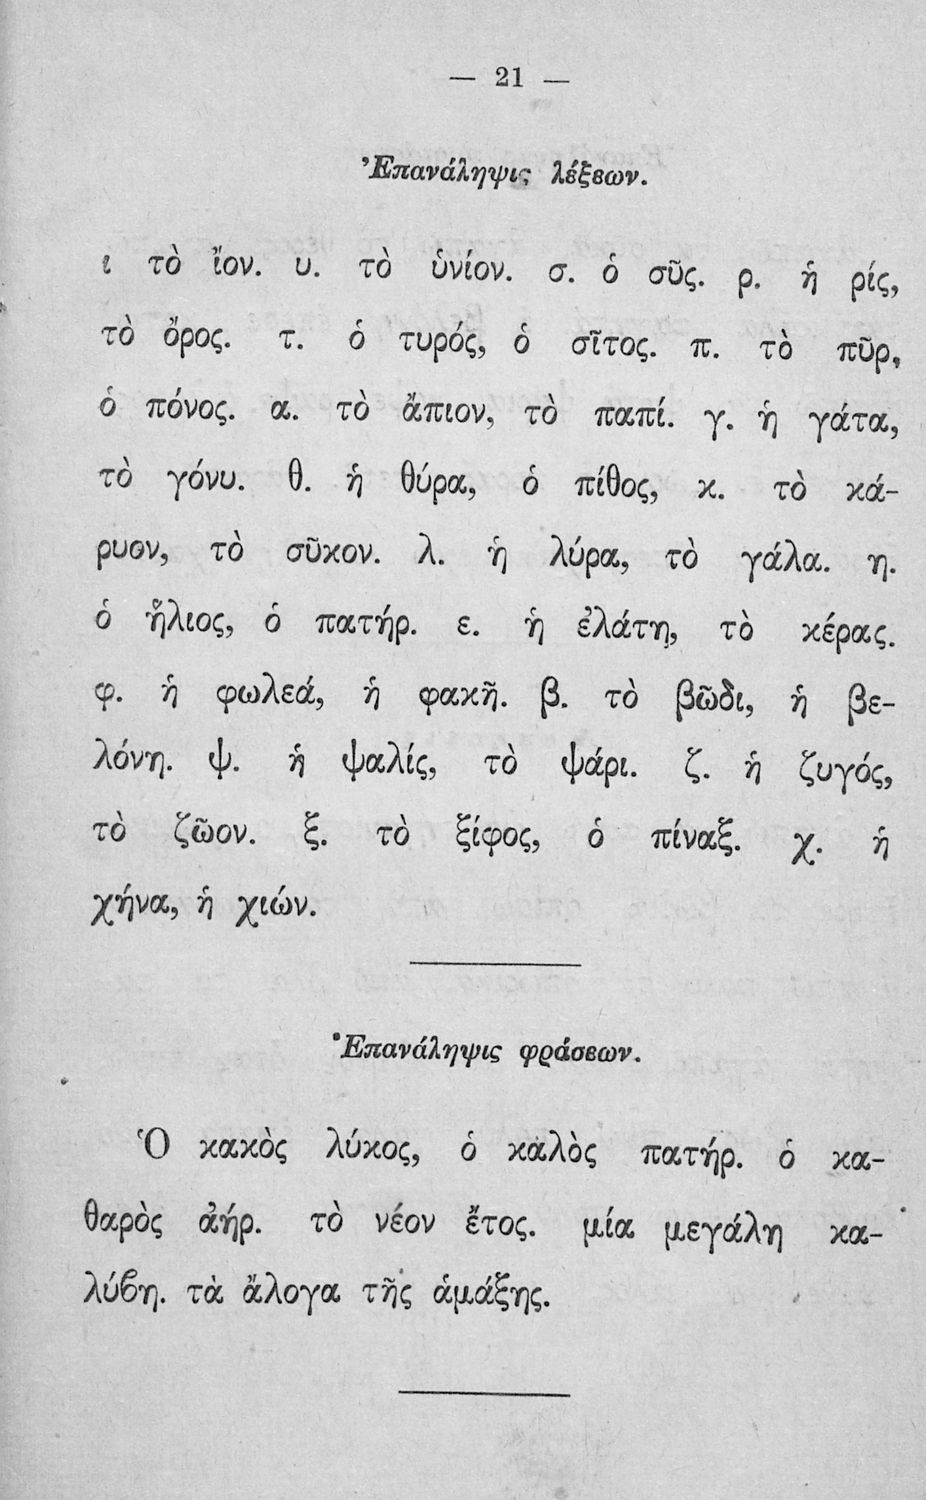 — 21 —
Ἐπανάληψις λέξεων.
ι τὸ ἴον. υ. τὸ ὑνίον. σ. ὁ σῦς. ρ. ἡ ρίς,
τὸ ὄρος. τ. ὁ τυρός, ὁ σῖτος. π. τὸ πῦρ,
ὁ πόνος. α. τὸ ἄπιον, τὸ παπί. γ. ἡ γάτα,
τὸ γόνυ. θ. ἡ θύρα, ὁ πίθος, κ. τὸ κά-
ρυον, τὸ σῦκον. λ. ἡ λύρα, τὸ γάλα. η.
ὁ ἥλιος, ὁ πατήρ. ε. ἡ ἐλάτη, τὸ κέρας.
φ. ἡ φωλεά, ἡ φακῆ. β. τὸ βῶδι, ἡ βε-
λόνη. ψ. ἡ ψαλίς, τὸ ψάρι. ζ. ἡ ζυγός,
τὸ ζῶον. ξ. τὸ ξίφος, ὁ πίναξ. χ. ἡ
χήνα, ἡ χιών.
Ἐπανάληψις φράσεων.
Ὁ κακὸς λύκος, ὁ καλὸς πατήρ. ὁ κα-
θαρὸς ἀήρ. τὸ νέον ἔτος. μία μεγάλη κα-
λύϐη. τὰ ἄλογα τῆς ἁμάξης.